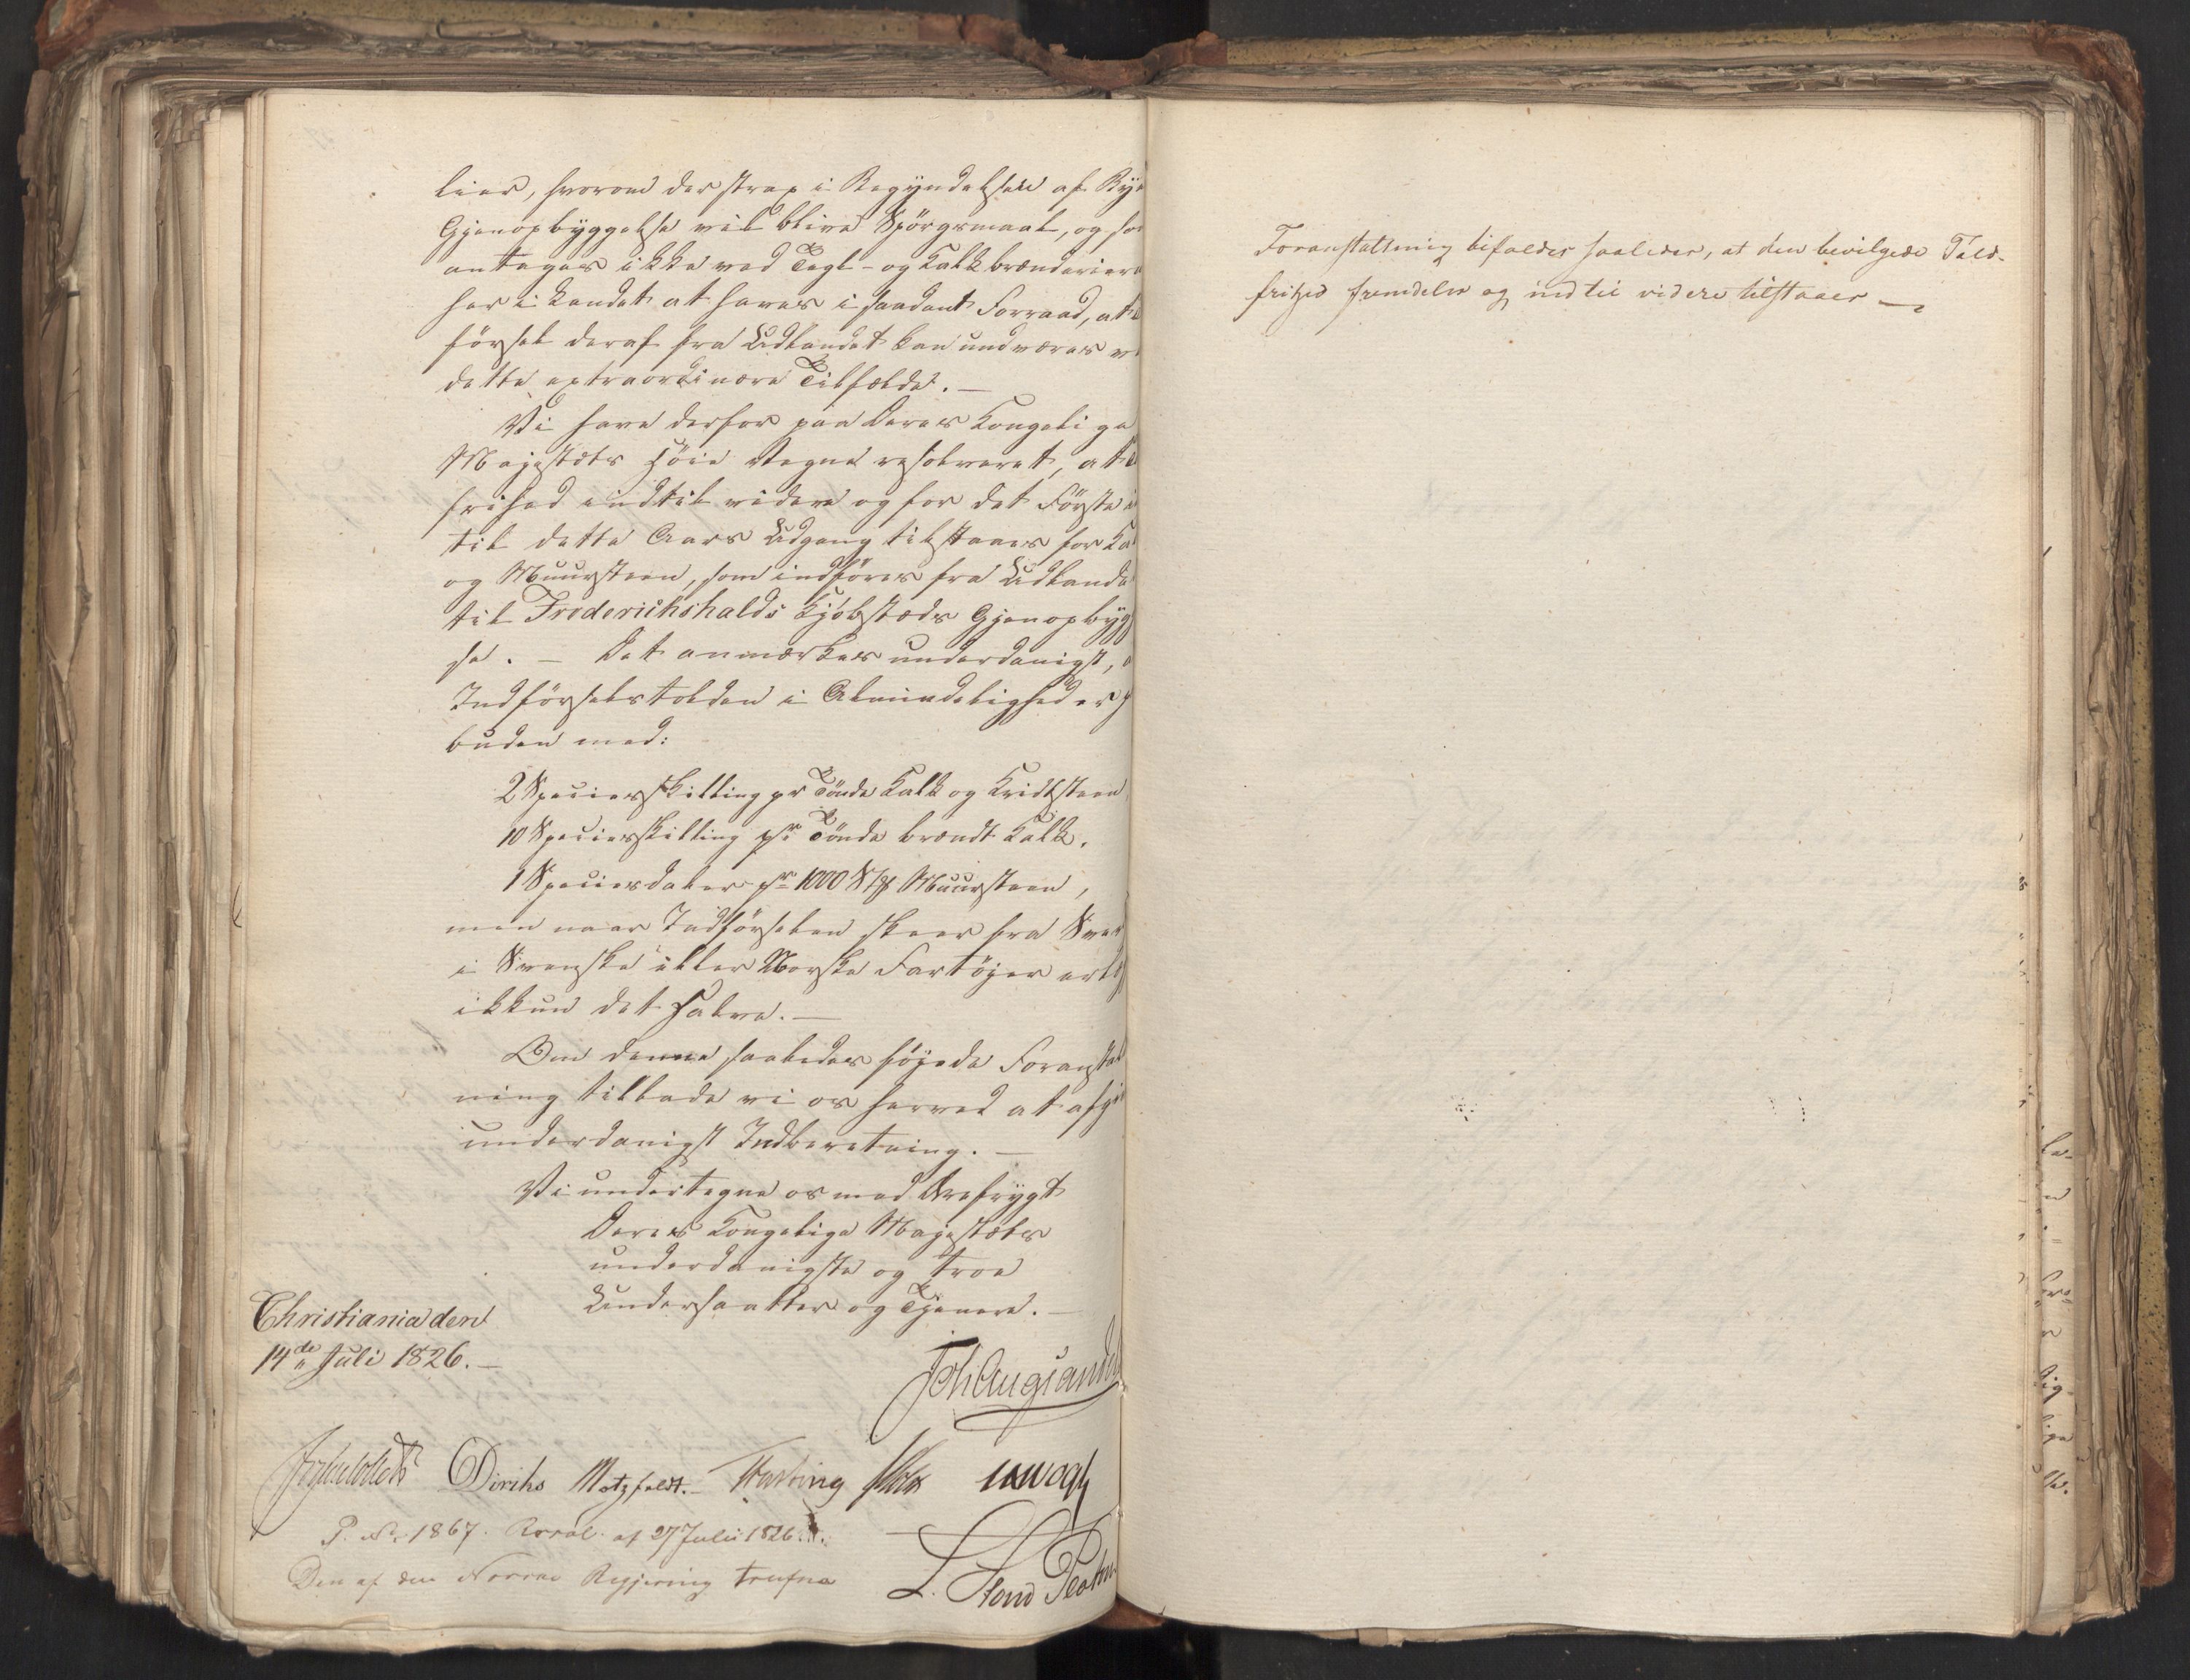 lier, hvorom der strax i Begyndelsen af Bye
Gjenopbyggelse vil blive Spörgsmaal, og so
antages ikke ved Tegl- og Kalkbrænderiern
her i Landet at haves i saadant Forraad, at
försel deraf fra Udlandet kan undværes v
dette extraordinære Tilfælde. —
Vi have derfor paa Deres Kongelige
Majestæts Höie Vegne resolveret, at
frihed indtil videre og for det Förste i
til dette Aars Udgang tilstaaes for Ka
og Muursteen, som indföres fra Udlande
til Frederichshalds Kjöbstæds Gjenopbyg
se. — Det anmærkes underdanigst, a
Indförselstolden i Almindelighed er p
buden med:
2 Speciesskilling pr Tönde Kalk og Kridtsteen
10 Speciesskilling pr Tönde brændt Kalk.
1 Speciesdaler pr 1000 Stk Muursteen,
men naar Indförselen skeer fra Sver
i Svenske eller Norske Fartöjer erlæg
ikkun det Halve. —
Om denne saaledes föjede Foranstalt
ning tillade vi os herved at afgi
underdanigst Indberetning. —
Vi undertegne os med Ærefrygt
Deres Kongelige Majestæts
underdanigste og troe
Undersaatter og Tjenere. —
Christiania den
14de Juli 1826. —
Joh Aug Sandel
J Collett Diriks Motzfeldt. Fasting Holst
P. No 1867. Resol. af 27 Julii 1826.
Den af den Norske Regjering trufne
Foranstaltning bifaldes saaledes, at den bevilgede Told-
frihed fremdeles og indtil videre tilstaaes —